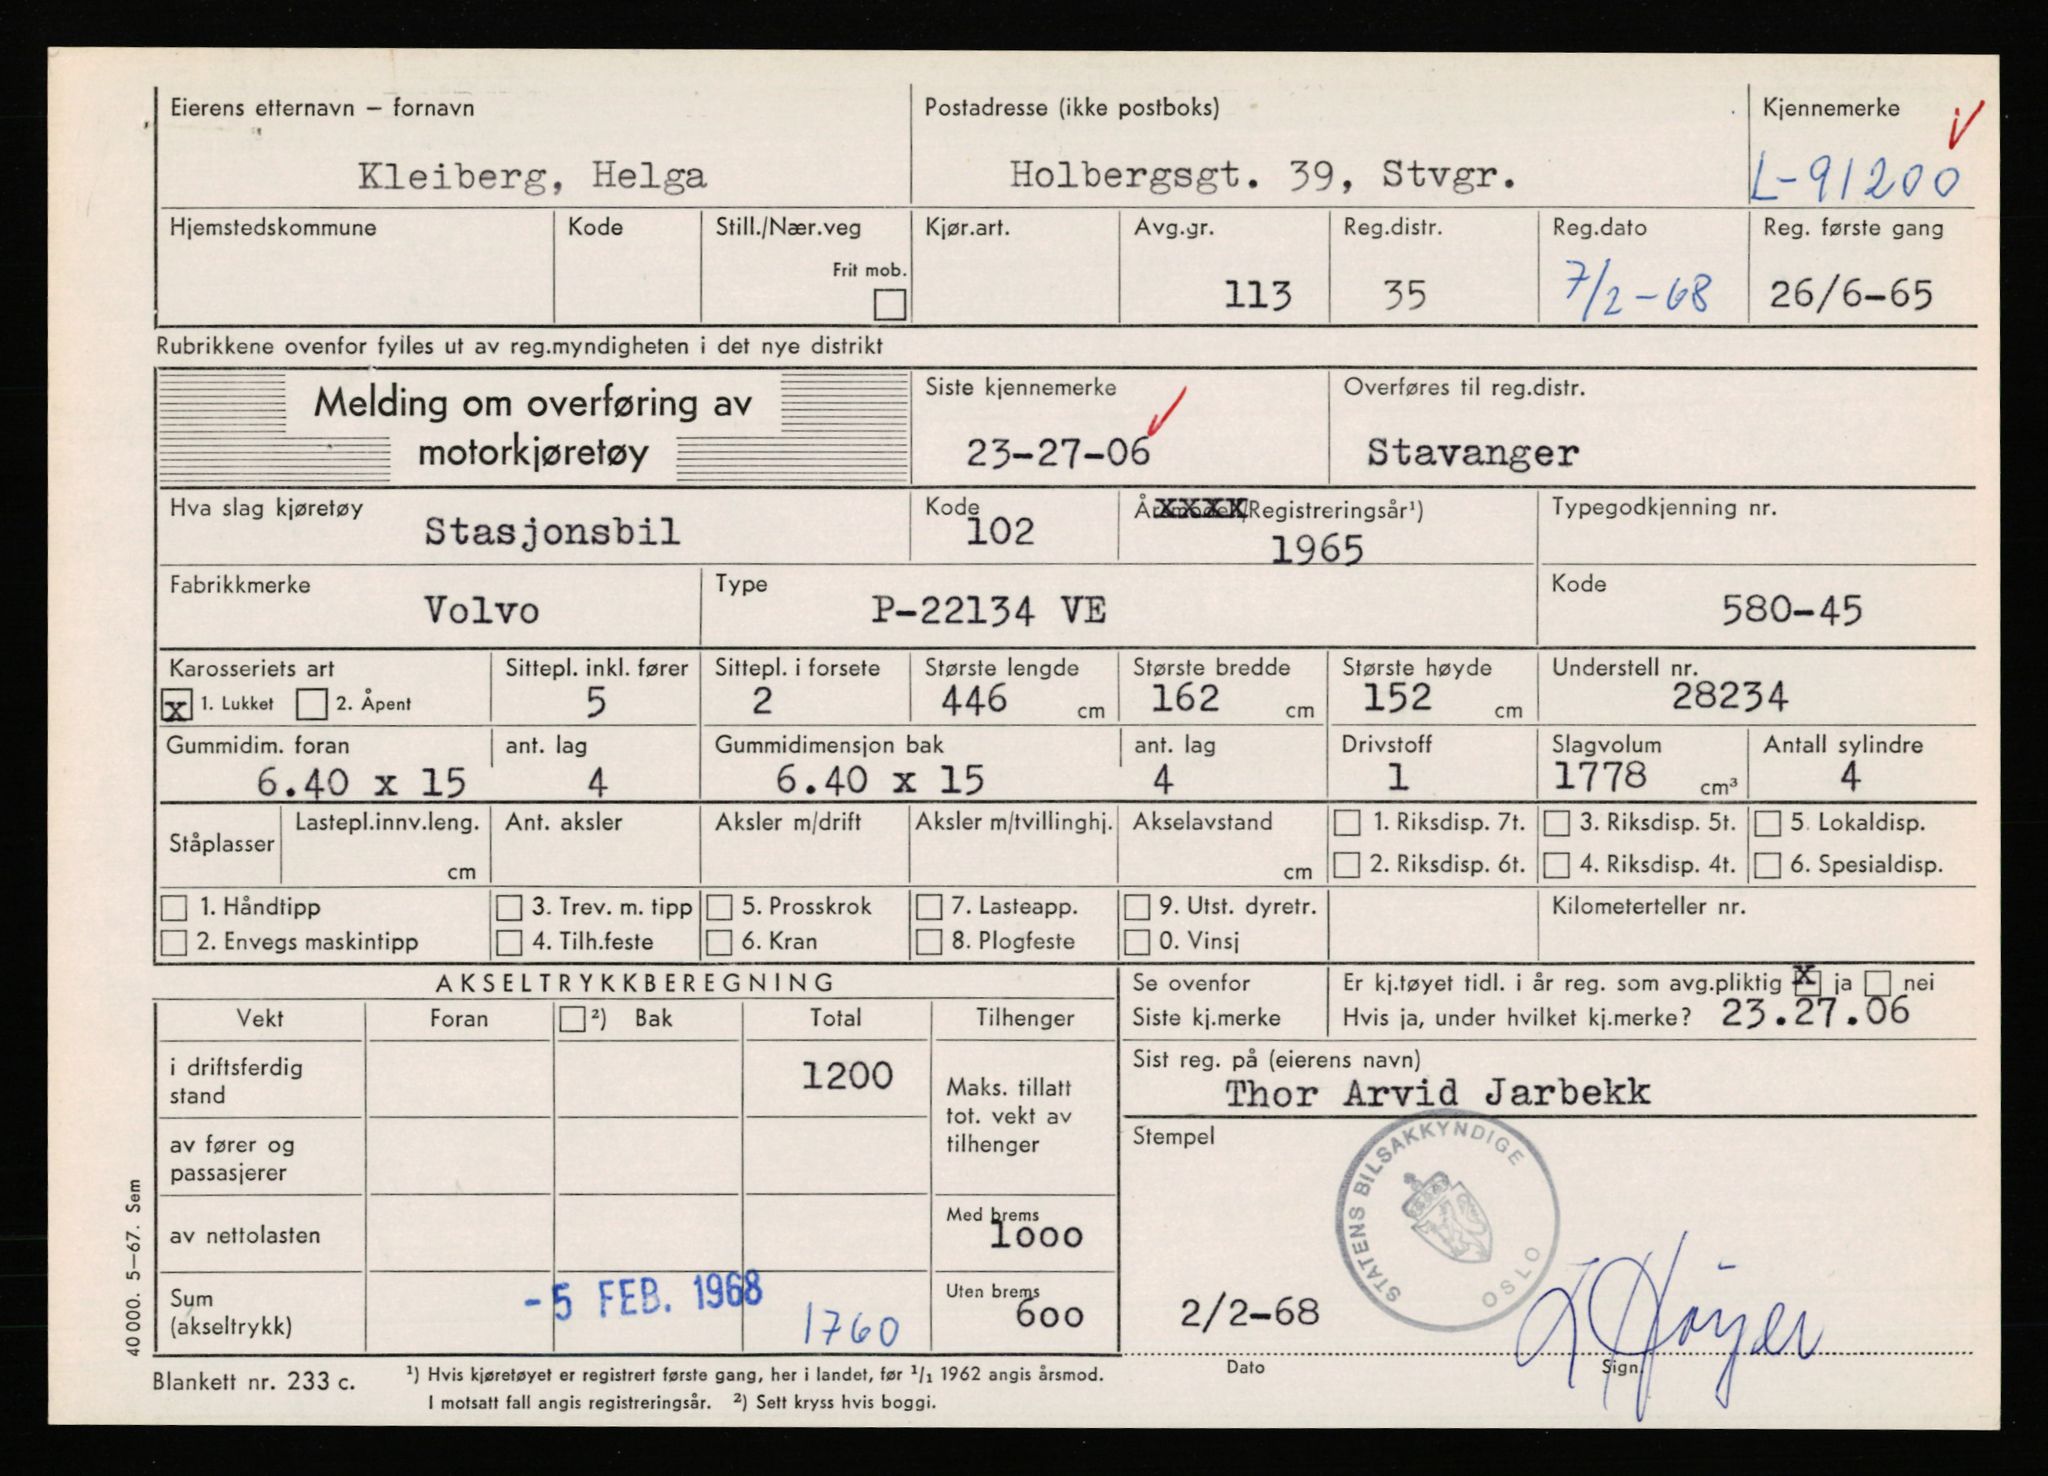 Eierens etternavn – fornavn Postadresse (ikke postboks) Kjennemerke
Kleiberg, Helga Holbergsgt. 39, Stvgr. L-91200
Hjemstedskommune Kode Still./Nær.veg Kjør.art. Avg.gr. Reg.distr. Reg.dato Reg. første gang
Frit mob.
113 35 7/2-68 26/6-65
Rubrikkene ovenfor fylles ut av reg.myndigheten i det nye distrikt
Melding om overføring av Siste kjennemerke Overføres til reg.distr.
motorkjøretøy 23-27-06 Stavanger
Hva slag kjøretøy Kode Årsmodell/Registreringsår¹) Typegodkjenning nr.
Stasjonsbil 102 1965
Fabrikkmerke Type Kode
Volvo P-22134 VE 580-45
Karosseriets art Sittepl. inkl. fører Sittepl. i forsete Største lengde Største bredde Største høyde Understell nr.
x 1. Lukket 2. Åpent 5 2 446 cm 162 cm 152 cm 28234
Gummidim. foran ant. lag Gummidimensjon bak ant. lag Drivstoff Slagvolum Antall sylindre
6.40 x 15 4 6.40 x 15 4 1 1778 cm³ 4
Ståplasser Lastepl.innv.leng. Ant. aksler Aksler m/drift Aksler m/tvillinghj. Akselavstand 1. Riksdisp. 7t. 3. Riksdisp. 5t. 5. Lokaldisp.
cm cm 2. Riksdisp. 6t. 4. Riksdisp. 4t. 6. Spesialdisp.
1. Håndtipp 3. Trev. m. tipp 5. Prosskrok 7. Lasteapp. 9. Utst. dyretr. Kilometerteller nr.
2. Envegs maskintipp 4. Tilh.feste 6. Kran 8. Plogfeste 0. Vinsj
AKSELTRYKKBEREGNING Se ovenfor Er kj.tøyet tidl. i år reg. som avg.pliktig x ja nei
Vekt Foran ²) Bak Total Tilhenger Siste kj.merke Hvis ja, under hvilket kj.merke? 23.27.06
i driftsferdig stand 1200 Maks. tillatt tot. vekt av tilhenger
Sist reg. på (eierens navn)
Thor Arvid Jarbekk
av fører og passasjerer
Stempel
STATENS BILSAKKYNDIGE OSLO
av nettolasten Med brems
1000
Sum (akseltrykk) -5 FEB. 1968 1760 Uten brems
600
2/2-68 Høyer
Dato Sign.
40 000. 5–67. Sem
Blankett nr. 233 c. ¹) Hvis kjøretøyet er registrert første gang, her i landet, før ¹/₁ 1962 angis årsmod.
I motsatt fall angis registreringsår. ²) Sett kryss hvis boggi.